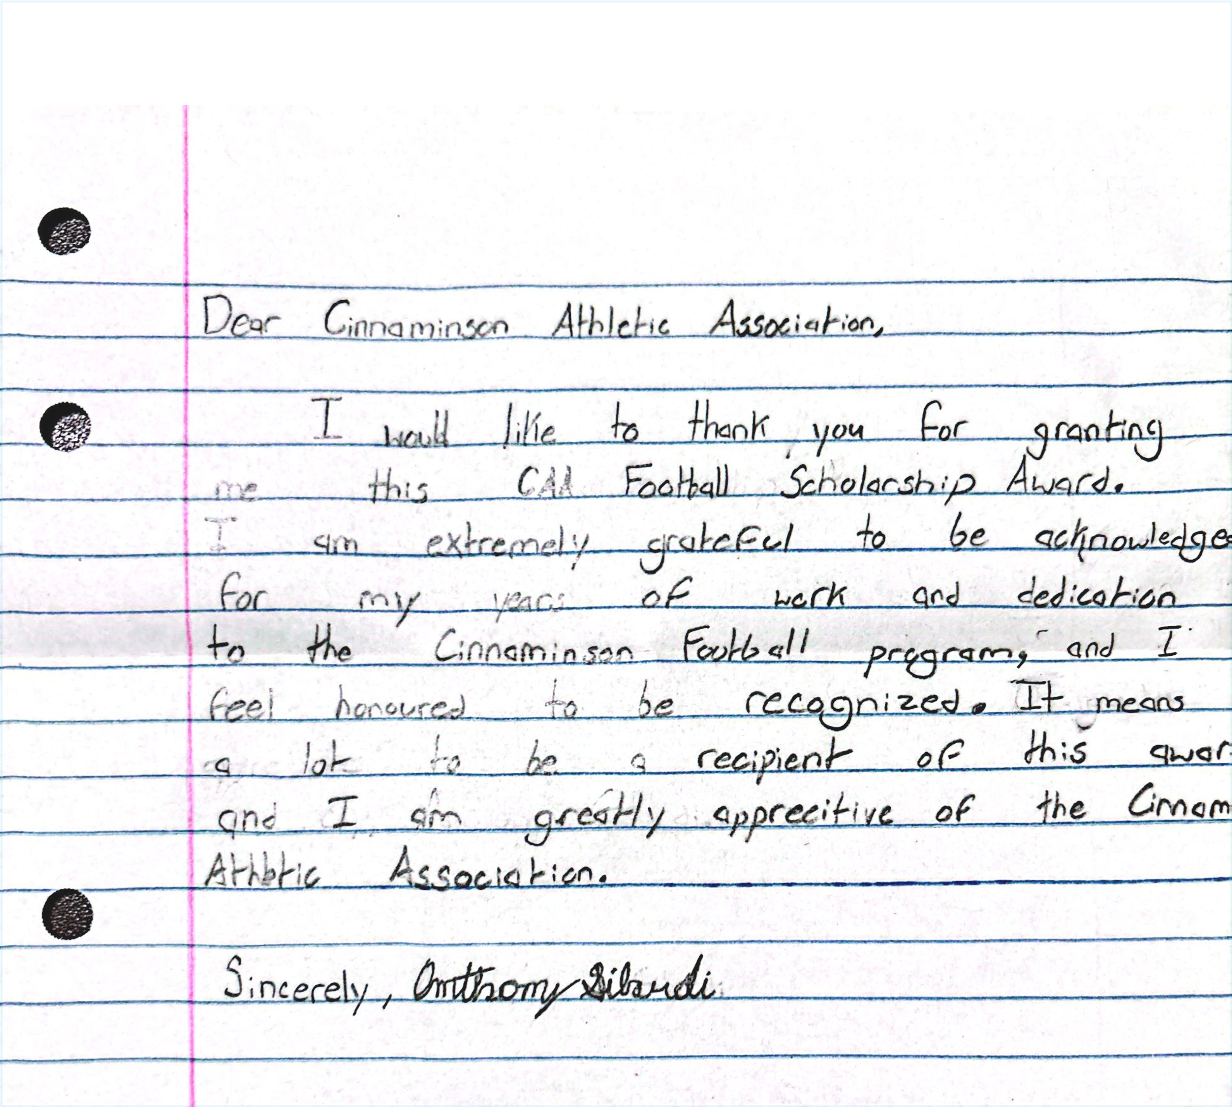 Dear Cinnaminson Athletic Association,
I would like to thank you for granting
me this CAA Football Scholarship Award.
I am extremely grateful to be acknowledge
for my years of work and dedication
to the Cinnaminson Football program, and I
feel honoured to be recognized. It means
a lot to be a recipient of this awar
and I am greatly apprecitive of the Cinnam
Athletic Association.
Sincerely, Anthony